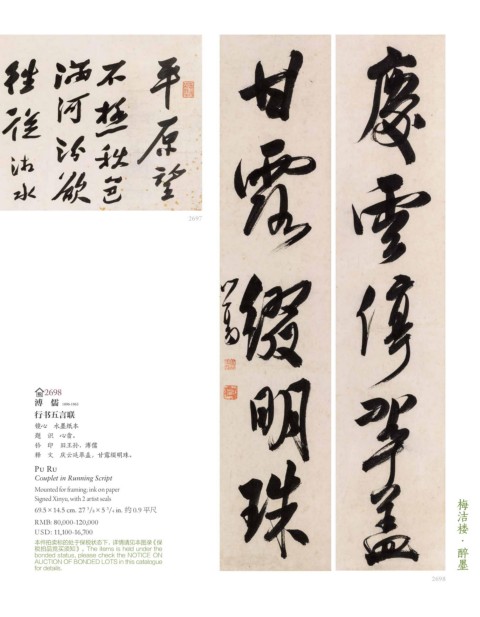 平原望
不極秋色
2697
慶雲停翠蓋
甘露綴明珠
心畬
2698
2698
溥 儒 1896-1963
行书五言联
镜心 水墨纸本
题 识 心畬。
钤 印 旧王孙、溥儒
释 文 庆云停翠盖,甘露缀明珠。
PU RU
Couplet in Running Script
Mounted for framing; ink on paper
Signed Xinyu, with 2 artist seals
69.5 × 14.5 cm. 27 3/8 × 5 3/4 in. 约 0.9 平尺
RMB: 80,000-120,000
USD: 11,100-16,700
本件拍卖标的处于保税状态下,详情请见本图录《保税拍品竞买须知》。The items is held under the
bonded status, please check the NOTICE ON
AUCTION OF BONDED LOTS in this catalogue
for details.
梅洁楼·醉墨